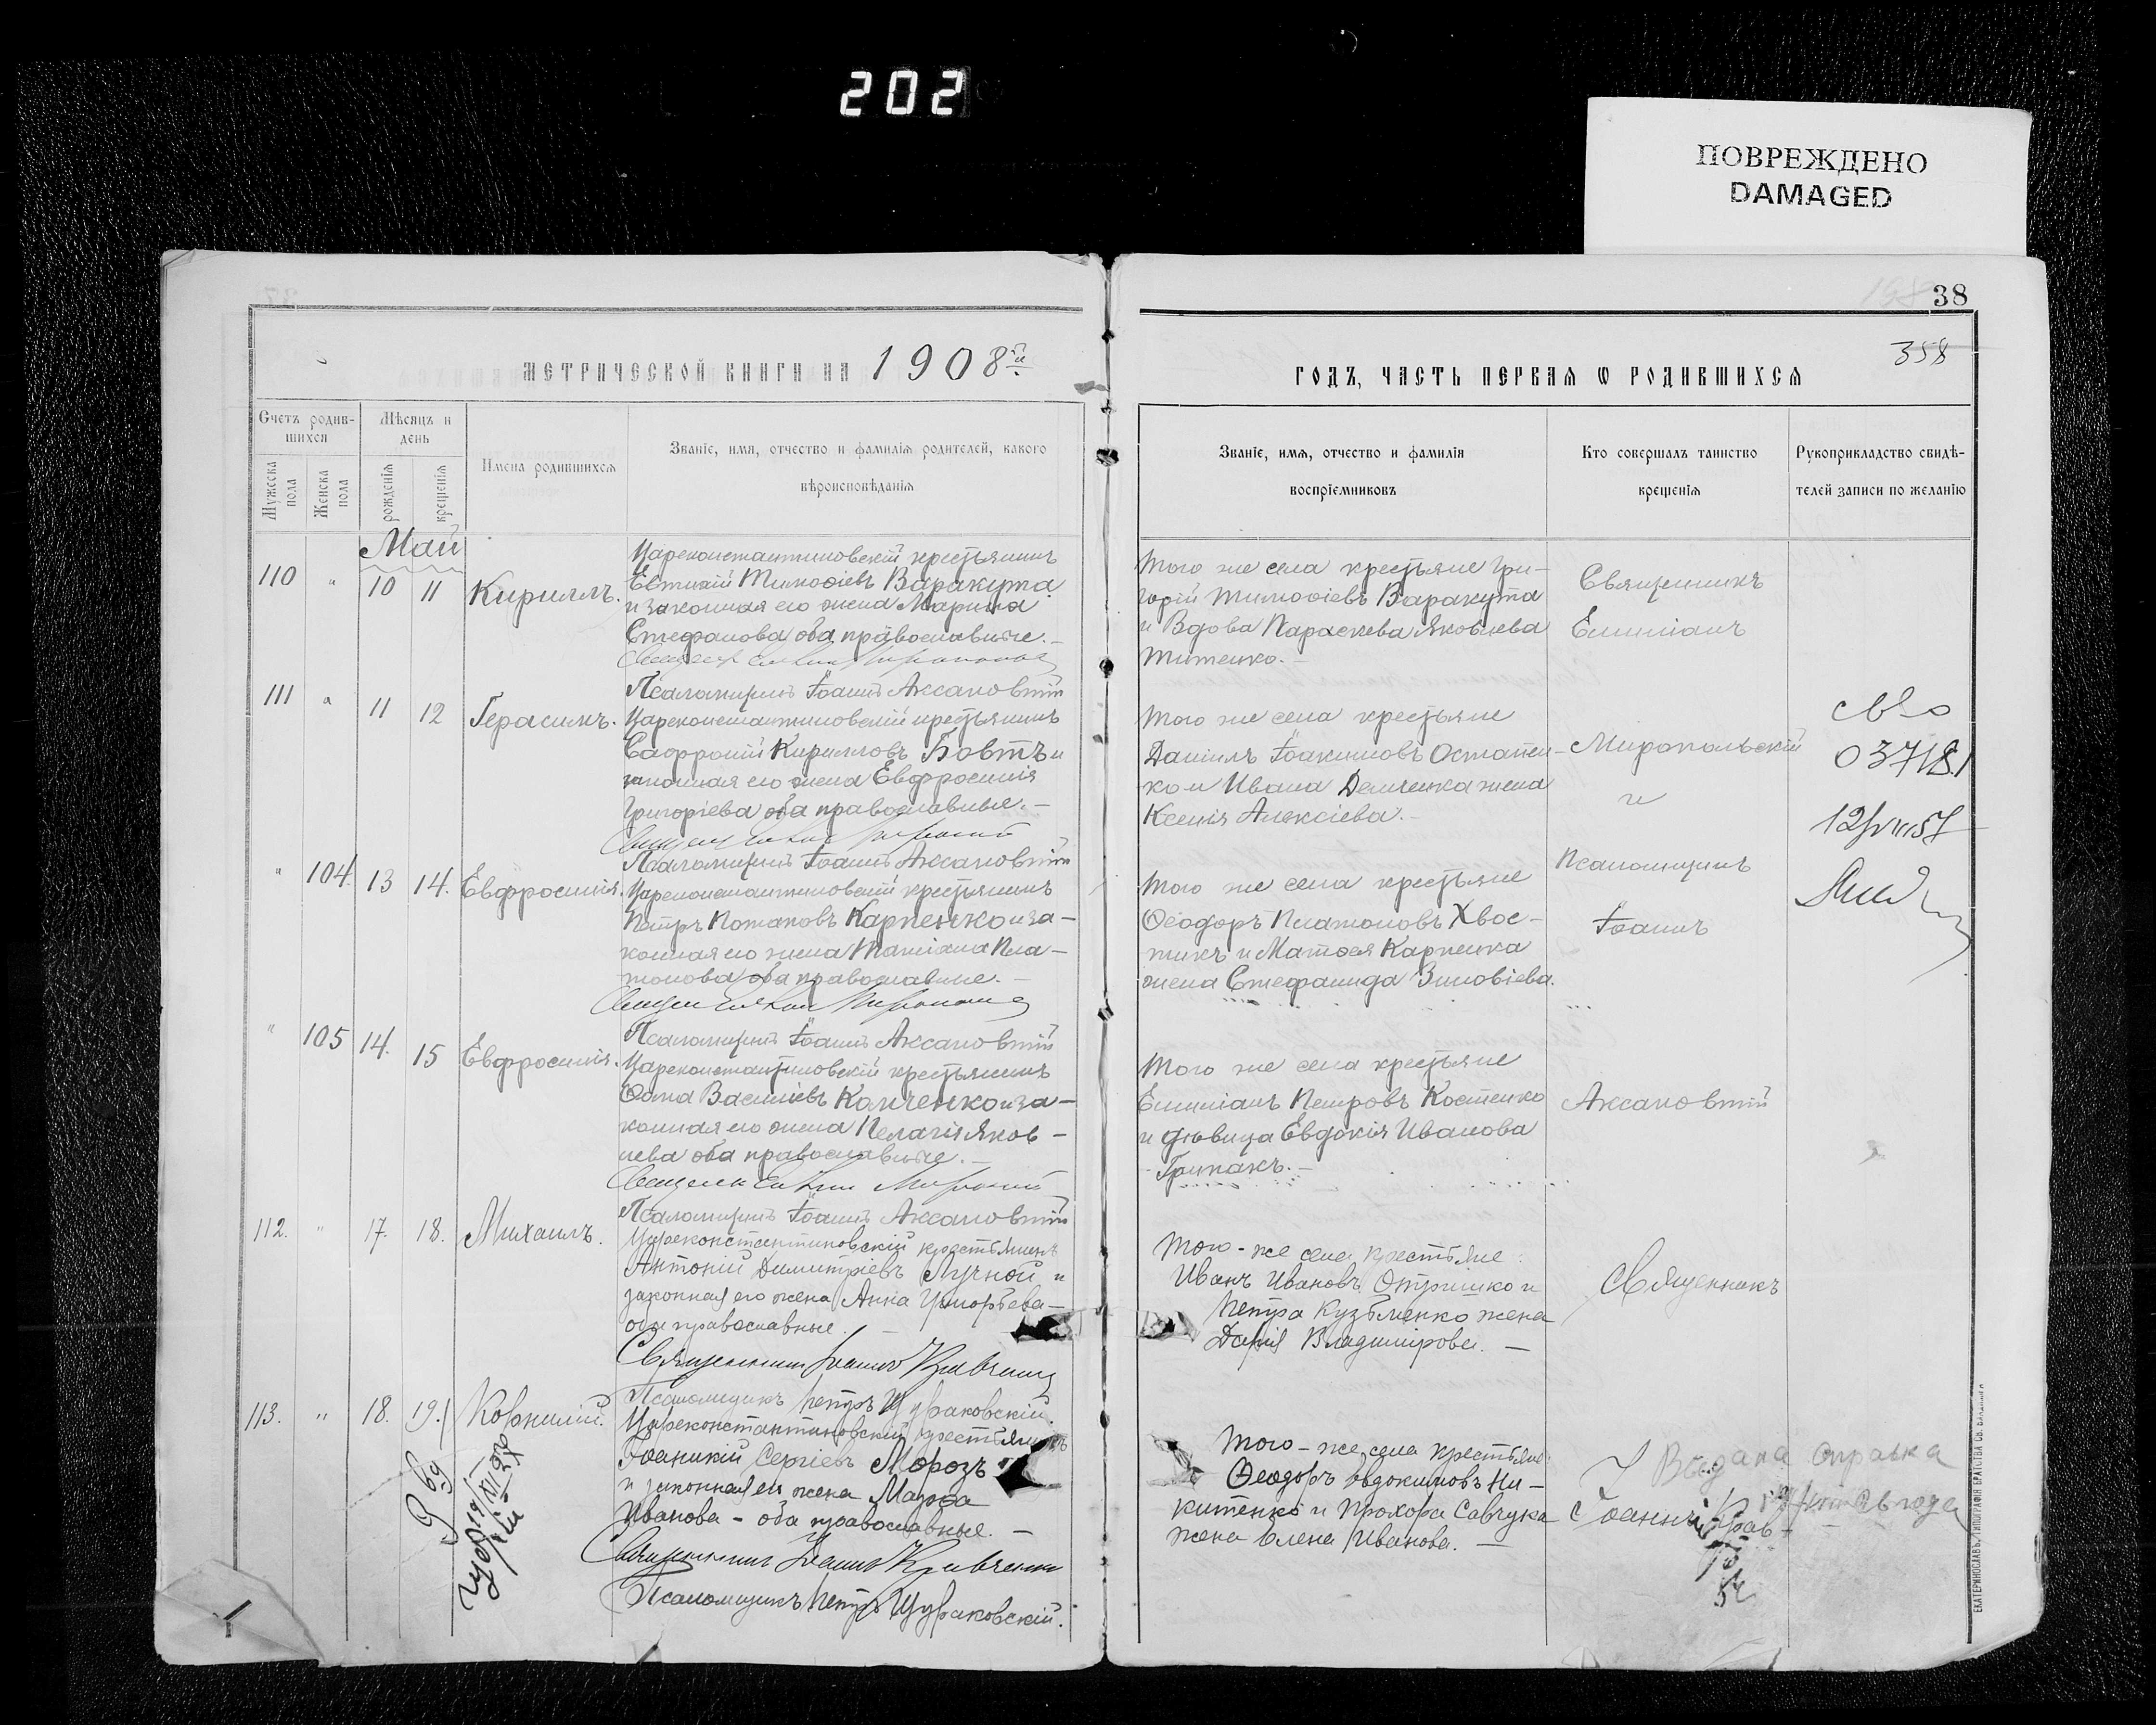 202
ПОВРЕЖДЕНО
DAMAGED
38
358
МЕТРИЧЕСКОЙ КНИГИ НА 1908й
ГОДЪ, ЧАСТЬ ПЕРВАЯ Ѡ РОДИВШИХСЯ
Счетъ родив-
шихся
Мужеска пола
Женска пола
Мѣсяцъ и
день
рожденія
крещенія
Имена родившихся
Званіе, имя, отчество и фамилія родителей, какого
вѣроисповѣданія
Званіе, имя, отчество и фамилія
воспріемниковъ
Кто совершалъ таинство
крещенія
Рукоприкладство свидѣ-
телей записи по желанію
Май
110 " 10 11 Кириллъ.
Цареконстантиновскій крестьянинъ
Евтихій Тимоѳіевъ Варакута
и законная его жена Марина
Стефанова оба православные.-
Псаломщикъ Іоаннъ Аксановскій
Того же села крестьяне Гри-
горій Тимоѳіевъ Варакута
и Вдова Параскева Яковлева
Титенко.-
Священникъ
Емиліанъ
111 " 11 12 Герасимъ.
Цареконстантиновскій крестьянинъ
Саффроній Кирилловъ Бовтъ и
законная его жена Евфросинія
Григоріева оба православные.-
Псаломщикъ Іоаннъ Аксановскій
Того же села крестьяне
Даніилъ Іоакимовъ Остапен-
ко и Ивана Демченка жена
Ксенія Алексіева.-
Миропольскій
и
св-о
037181
" 104. 13 14. Евфросинія.
Цареконстантиновскій крестьянинъ
Петръ Потаповъ Карпенко и за-
конная его жена Татіана Пла-
тонова оба православные.-
Псаломщикъ Іоаннъ Аксановскій
Того же села крестьяне
Ѳеодоръ Платоновъ Хвос-
тикъ и Матѳея Карпенка
жена Стефанида Зиновіева.
Псаломщикъ
Іоаннъ
" 105 14. 15 Евфросинія.
Цареконстантиновскій крестьянинъ
Ѳома Василіевъ Колченко и за-
конная его жена Пелагія Яков-
лева оба православные.-
Псаломщикъ Іоаннъ Аксановскій
Того же села крестьяне
Емиліанъ Петровъ Костенко
и дѣвица Евдокія Иванова
Грипакъ.-
Аксановскій
112. " 17. 18. Михаилъ.
Цареконстантиновскій крестьянинъ
Антоній Димитріевъ Лучной и
законная его жена Анна Григорьева-
оба православные. -
Священникъ Іоаннъ Кравченко
Псаломщикъ Петръ Цураковскій.
Того-же села крестьяне
Иванъ Ивановъ Отришко и
Петра Кузьменко жена
Дарія Владимірова. -
Священникъ
113. " 18. 19. Корнилій.
Цареконстантиновскій крестьянинъ
Іоаникій Сергіевъ Морозъ
и законная его жена Марѳа
Иванова - оба православные. -
Священникъ Іоаннъ Кравченко
Псаломщикъ Петръ Цураковскій.
Того-же села крестьяне
Ѳеодоръ Евдокимовъ Ни-
китенко и Прохора Савчука
жена Елена Иванова. -
Іоаннъ Крав-
Выдана справка
ЕКАТЕРИНОСЛАВЪ, ТИПОГРАФІЯ БРАТСТВА СВ. ВЛАДИМІРА